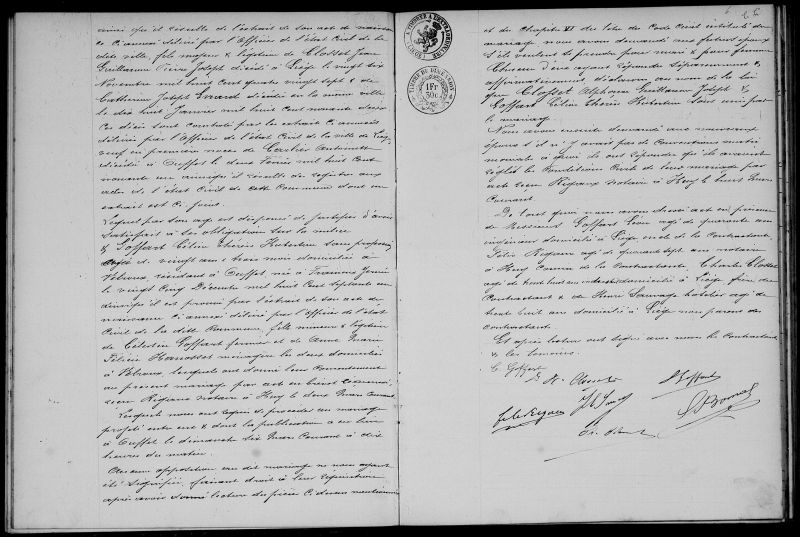 ainsi qu'il résulte de l'extrait de son acte de naissance
ci annexé délivré par l'officier de l'état civil de la
dite ville, fils majeur & légitime de Closset Jean
Guillaume Pierre Joseph décédé à Liège le vingt six
Novembre mil huit cent quatre vingt sept & de
Catherine Joseph décédée en la même ville
le dix huit Janvier mil huit cent nonante deux
Ces décès sont constatés par les extraits ci annexés
délivrés par l'officier de l'état civil de la ville de Liège,
veuf en premières noces de Antoinette
décédée à Ouffet le deux Février mil huit cent
nonante un ainsi qu'il résulte du registre aux
actes de l'état civil de cette Commune dont un
extrait est ci joint.
Lequel par son âge est dispensé de justifier d'avoir
satisfait à ses obligations sur la milice
& Goffart Céline Thérèse Hubertine sans profession
âgée de vingt ans & trois mois domiciliée à
résidant à Ouffet née à
le vingt cinq Décembre mil huit cent septante un
ainsi qu'il est prouvé par l'extrait de son acte de
naissance ci annexé délivré par l'officier de l'état
Civil de la dite Commune, fille mineure & légitime
de Célestin Goffart fermier et de Anne Marie
Félicie ménagère les deux domiciliés
à lesquels ont donné leur consentement
au présent mariage par acte en brevet
notaire à Huy le deux Mars courant.
Lesquels nous ont requis de procéder au mariage
projeté entre eux & dont la publication a eu lieu
à Ouffet le dimanche six Mars courant à dix
heures du matin.
Aucune opposition au dit mariage ne nous ayant
été signifiée, faisant droit à leur réquisition
après avoir donné lecture des pièces ci dessus mentionnées
et du Chapitre VI du titre du Code Civil intitulé du
mariage nous avons demandé aux futurs époux
s'ils veulent se prendre pour mari & pour femme
Chacun d'eux ayant répondu séparément &
affirmativement déclarons au nom de la loi
que Closset Alphonse Guillaume Joseph &
Goffart Céline Thérèse Hubertine sont unis par
le mariage.
Nous avons ensuite demandé aux nouveaux
époux s'il n'y avait pas de Conventions matri
moniales à quoi ils ont répondu qu'ils avaient
réglé les Conditions Civiles de leur mariage par
acte notaire à Huy le huit Mars
Courant.
De tout quoi nous avons dressé acte en présence
de Messieurs Goffart Léon âgé de quarante ans
ingénieur domicilié à Liège oncle de la contractante.
Félix âgé de quarante sept ans notaire
à Huy Cousin de la Contractante, Charles Closset
âgé de domicilié à Liège frère du
Contractant & de Henri Sauvage hôtelier âgé de
trente huit ans domicilié à Liège non parent des
contractants.
Et après lecture ont signé avec nous les Contractants
& les témoins.
C. Goffart
L. Goffart
TIMBRE DE DIMENSION
1 Fr
30 c